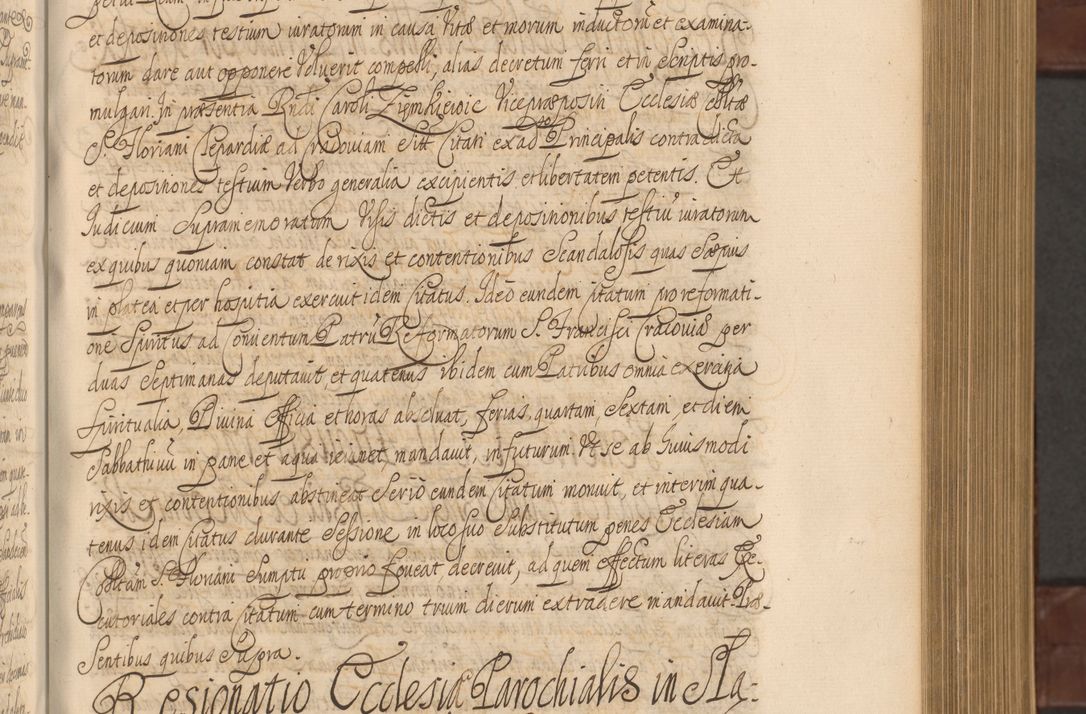 et depositiones testium iuratorum in causa Vitæ et morum inductorū et examina-
torum dare aut opponere Voluerit compelli, alias decretum ferri et in scriptis pro-
mulgari. In præsentia Rndi Caroli Ziemkieiwic Vicepræpositi Ecclesiæ Colltæ
S. Floriani Clepardiæ ad Cracoviam siti Citati ex ad Principalis contra dicta
et depositiones testium Verbo generalia excipientis et libertatem petentis. Et
Iudicium Supramemoratum Visis dictis et depositionibus testiū iuratorum
ex quibus quoniam constat de rixis et contentionibus Scandalosis quas Sæpius
in platea et per hospitia exercuit idem Citatus. Ideo eundem Citatum pro reformati-
one Spiritus ad Conventum Patrū Reformatorum S. Francisci Cracoviæ per
duas Septimanas deputavit, et quatenus ibidem cum Patribus omnia exercitia
Spiritualia, Divina Officia et horas absolvat, ferias quartam Sextam, et diem
Sabbathivū in pane et aqua ieiunet mandavit, in futurum Vt se ab huiusmodi
rixis et contentionibus abstineat Serio eundem Citatum monuit, et interim qua-
tenus idem Citatus durante Sessione in loco suo Substitutum penes Ecclesiam
Colltam S. Floriani Sumptu proprio foveat, decrevit, ad quem effectum literas Exe-
cutoriales contra Citatum cum termino trium dierum extradere mandavit. Præ-
Sentibus quibus Supra.
Resignatio Ecclesiæ Parochialis in Sla-